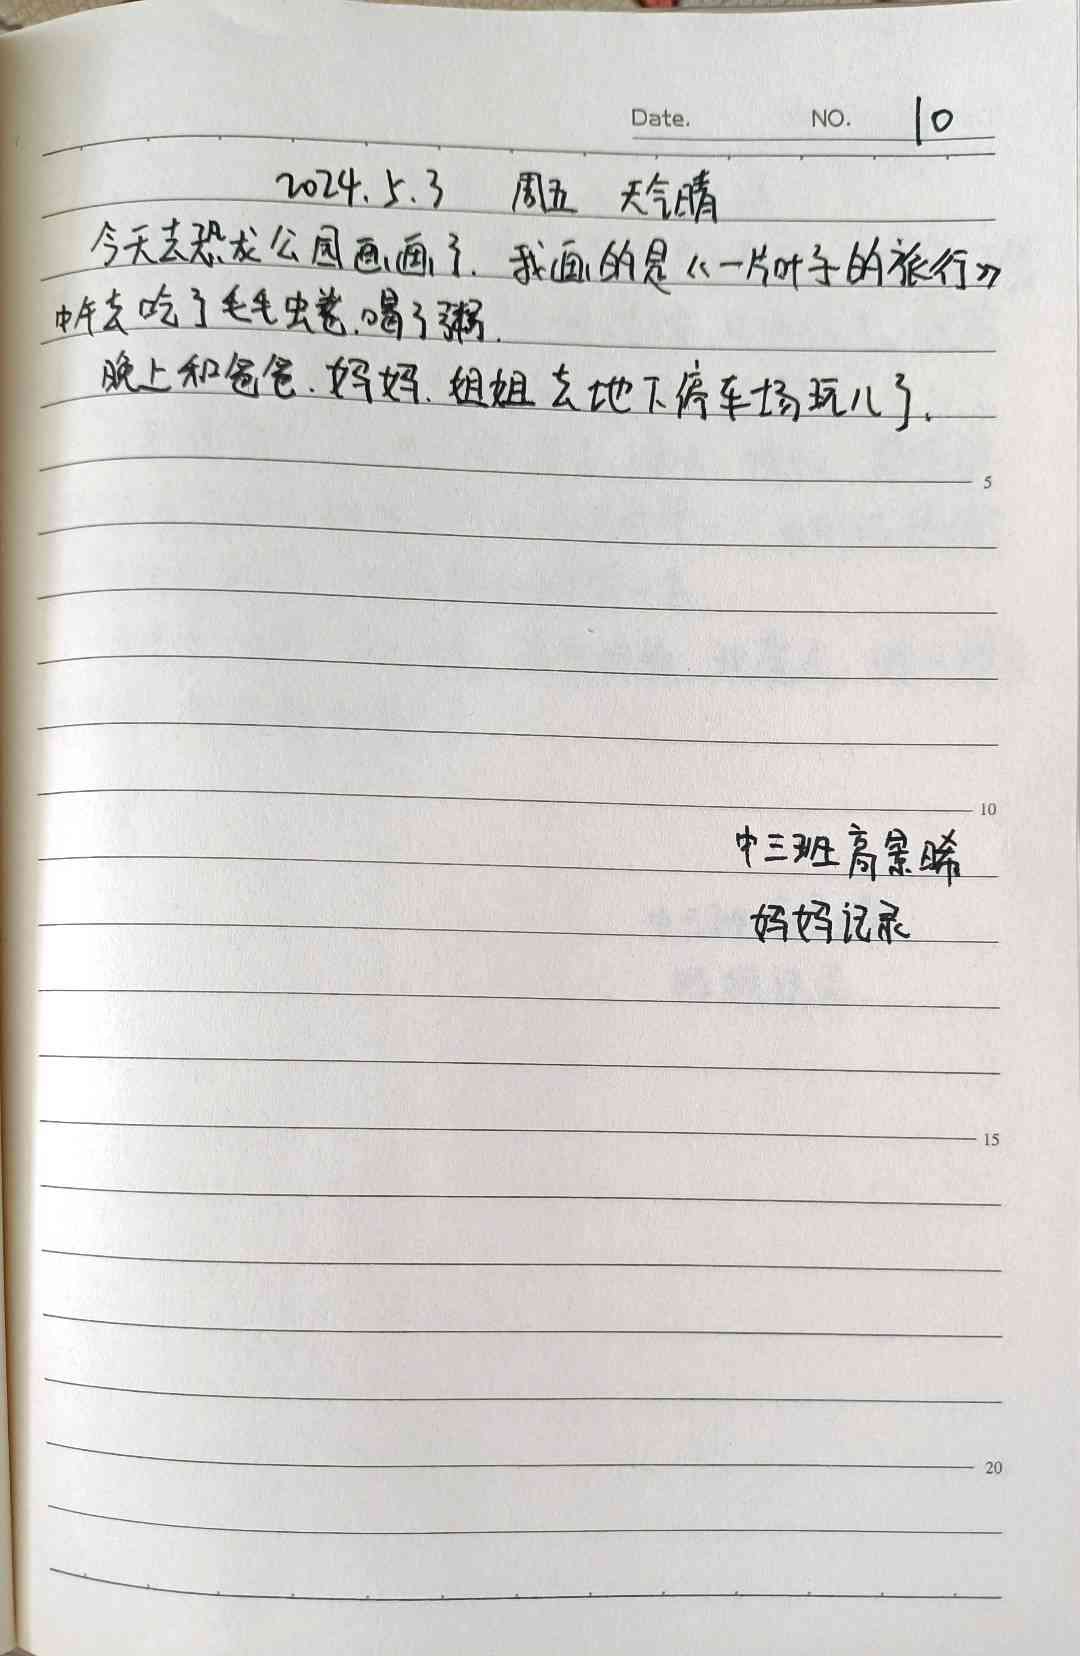 Date. NO. 10
2024.5.3 周五 天气晴
今天去恐龙公园画画了. 我画的是《一片叶子的旅行》
中午去吃了毛毛虫卷.喝了粥.
晚上和爸爸.妈妈.姐姐去地下停车场玩儿了.
5
10
中三班高景晞
妈妈记录
15
20